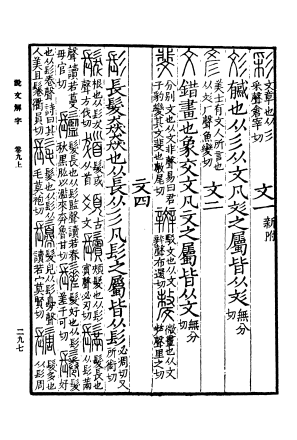 彩文章也从彡采聲倉宰切 文一 新附
彣㦽也从彡从文凡彣之屬皆从彣無分切
彥美士有文人所言也从彣厂聲魚變切 文二
文錯畫也象交文凡文之屬皆从文無分切
斐分別文也从文非聲易曰君子豹變其文斐也敷尾切 辬駁文也从文辡聲布還切 嫠微畫也从文𠩺聲里之切
文四
髟長髮猋猋也从長从彡凡髟之屬皆从髟必凋切又所銜切
髮根也从髟犮聲方伐切 髮或从首 古文 鬢頰髮也从髟賓聲必刃切 鬗髮長也从髟㒼
聲讀若蔓母官切 髮長也从髟監聲讀若春秋黑肱以濫來奔魯甘切 髮好也从髟差千可切 鬈髮好
也从髟卷聲詩曰其人美且鬈衢員切 髦髮也从髟从毛莫袍切 髮皃从髟臱聲讀若宀莫賢切 髮多也从髟周
說文解字
卷九上
二九七